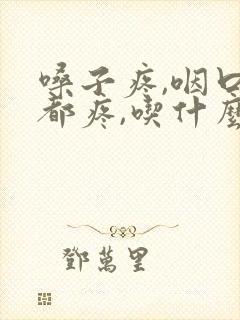 嗓子疼,咽口
都疼,喫什麼
鄧萬里